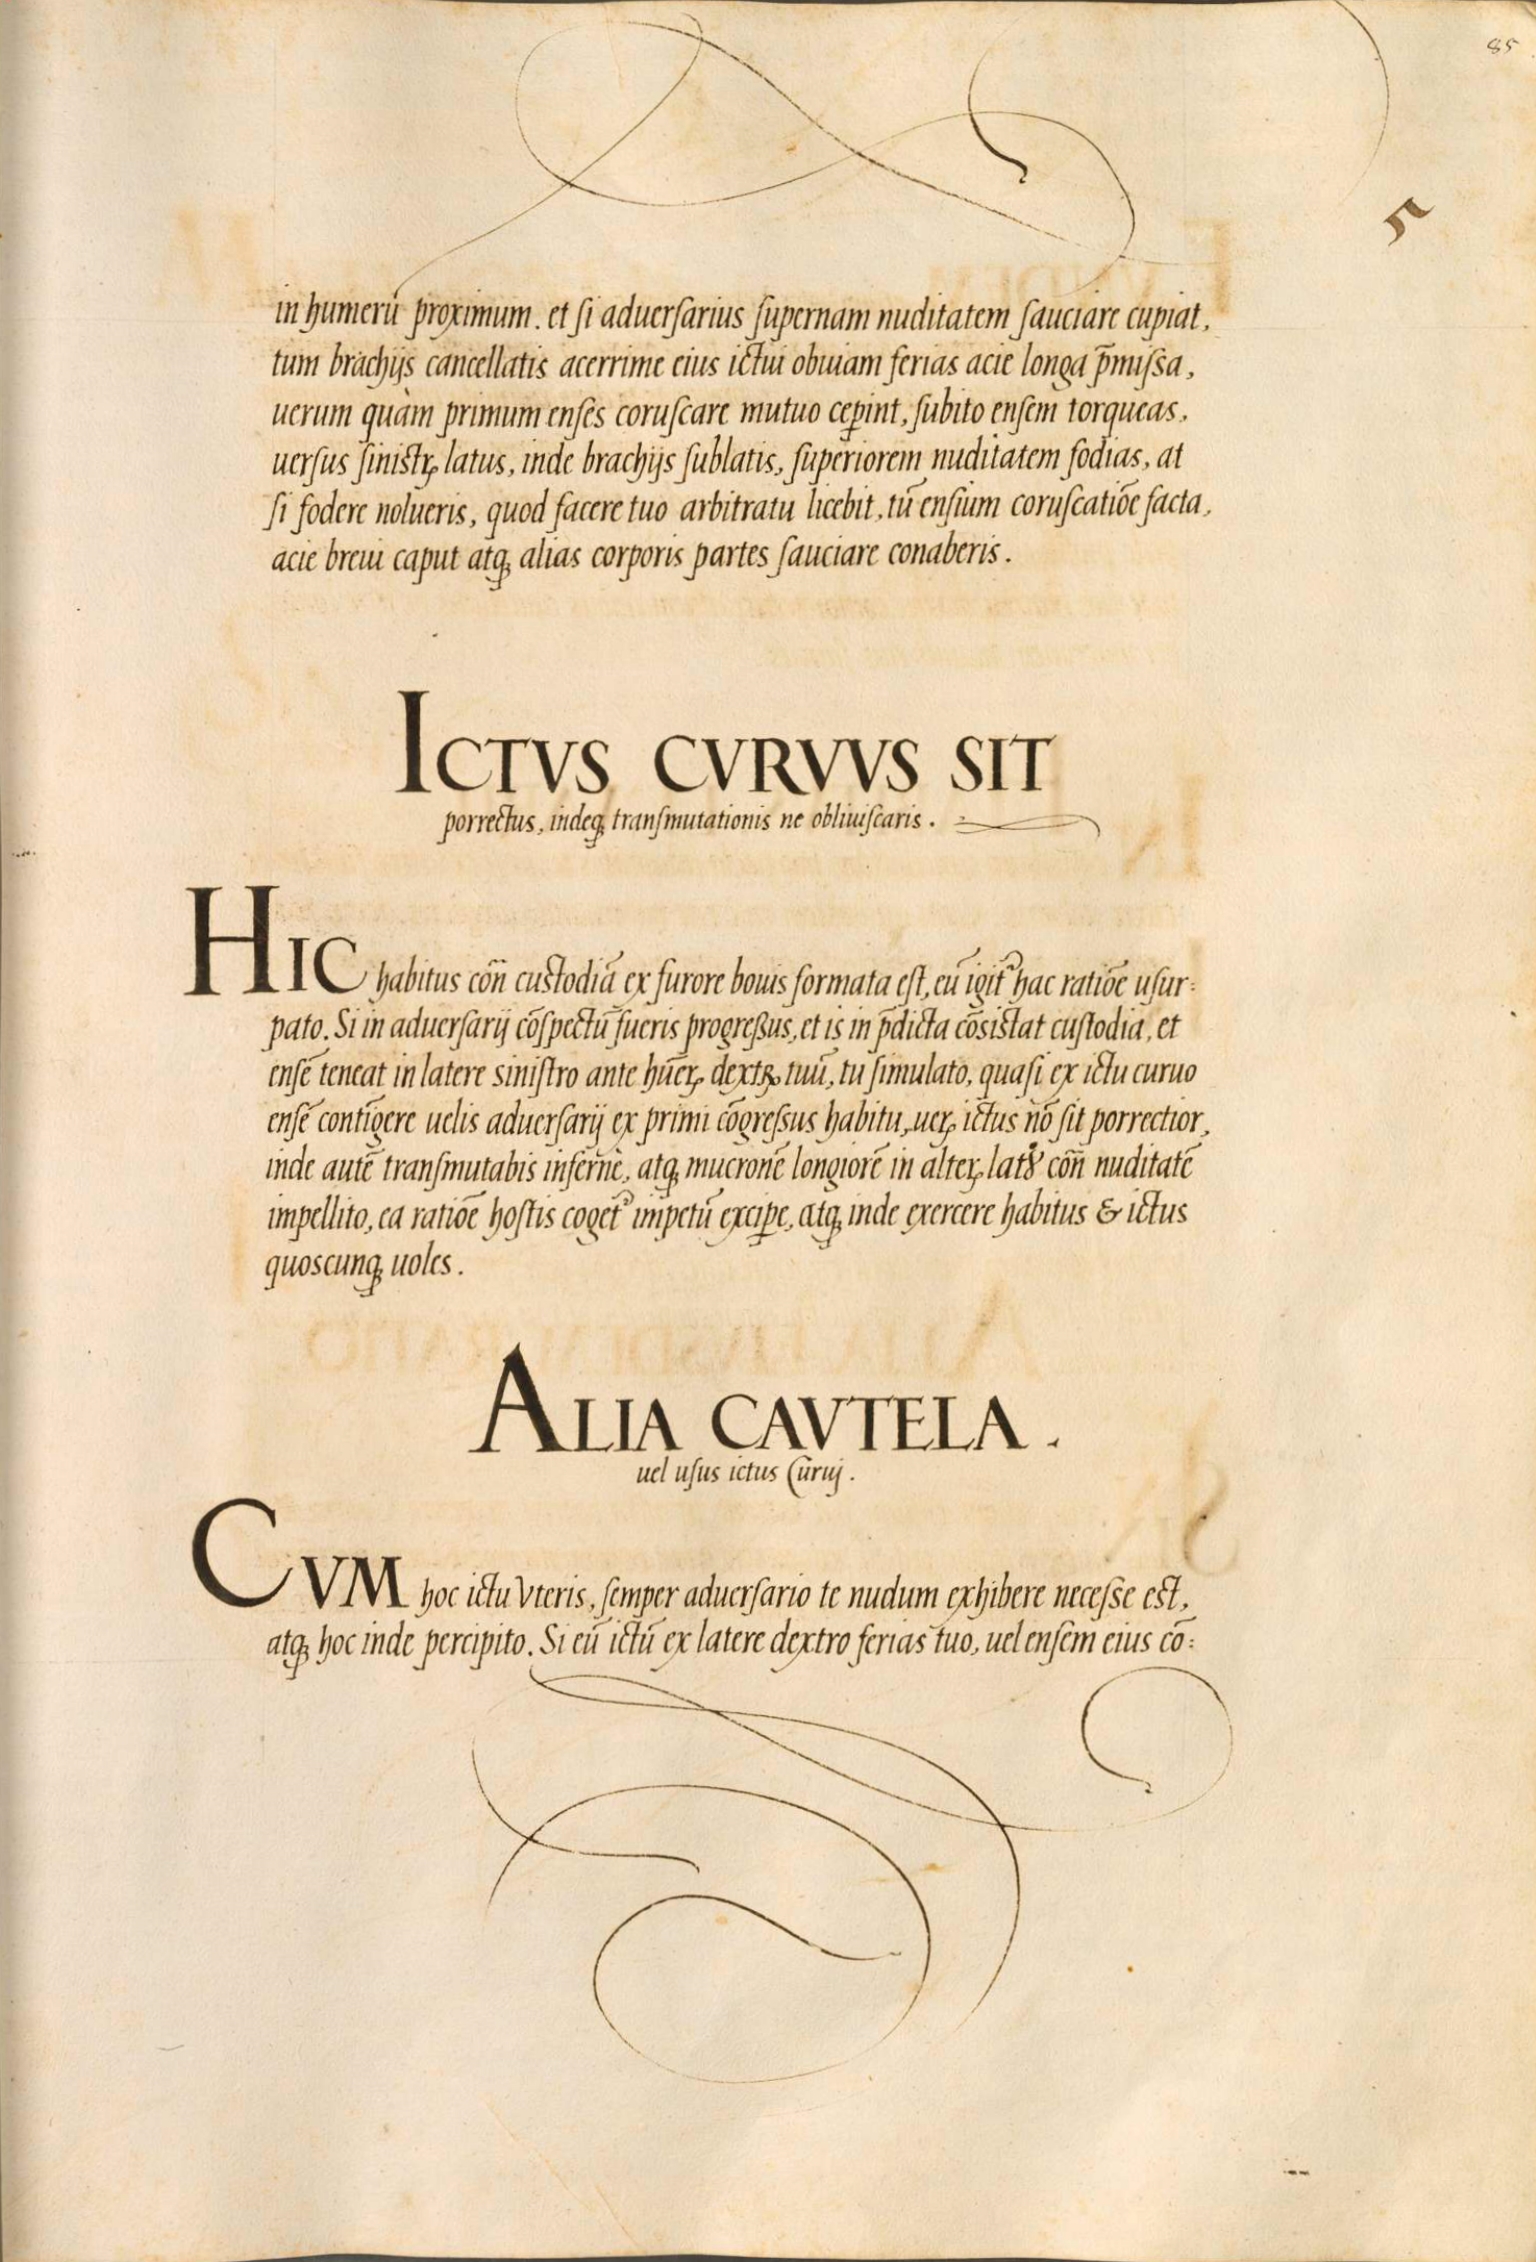 85
in humerū proximum. et si aduersarius supernam nuditatem sauciare cupiat,
tum brachijs cancellatis acerrime eius ictui obuiam ferias acie longa p̄missa,
uerum quàm primum enses coruscare mutuo cep̱int, subito ensem torqueas,
uersus sinistꝝ latus, inde brachijs sublatis, superiorem nuditatem fodias, at
si fodere nolueris, quod facere tuo arbitratu licebit, tū ensium coruscatiōe facta,
acie breui caput atqꝫ alias corporis partes sauciare conaberis.
ICTVS CVRVVS SIT
porrectus, indeqꝫ transmutationis ne obliuiscaris.
HIC habitus cōn custodiā ex furore bouis formata est, eū igit᷑ hac ratiōe usur:
pato. Si in aduersarij cōspectū fueris progreßus, et is in p̄dicta cōsistat custodia, et
ensē teneat in latere sinistro ante hūeꝝ dextꝝ tuū, tu simulato, quasi ex ictu curuo
ensē contīgere uelis aduersarij ex primi cōgressus habitu, ueꝝ ictus nō sit porrectior,
inde autē transmutabis infernè, atqꝫ mucronē longiorē in alteꝝ lat9 cōn nuditatē
impellito, ea ratiōe hostis coget᷑ impetū excip̱e, atqꝫ inde exercere habitus & ictus
quoscunqꝫ uoles.
ALIA CAVTELA.
uel usus ictus Curuj.
CVM hoc ictu Vteris, semper aduersario te nudum exhibere necesse est,
atqꝫ hoc inde percipito. Si eū ictū ex latere dextro ferias tuo, uel ensem eius cō: